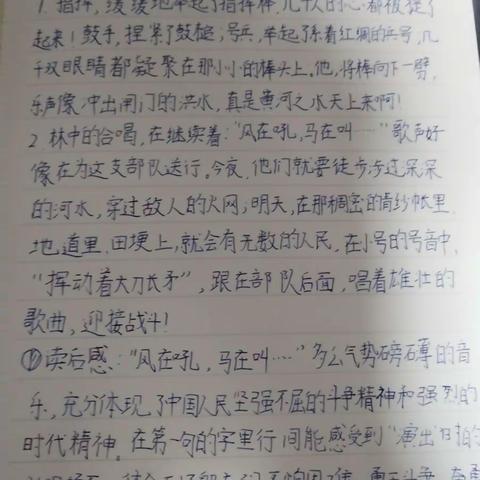 1. 指挥,缓缓地举起了指挥棒,几十人的心都被提了
起来!鼓手,捏紧了鼓槌;号兵,举起了系着红绸的兵号,几
千双眼睛都凝聚在那小小的棒头上,他,将棒向下一劈,
乐声像冲出闸门的洪水,真是黄河之水天上来啊!
2. 林中的合唱,在继续着:“风在吼,马在叫……”歌声好
像在为这支部队送行。今夜,他们就要徒步涉过深深
的河水,穿过敌人的火网;明天,在那稠密的青纱帐里
地道里、田埂上,就会有无数的人民,在小号的号音中,
“挥动着大刀长矛”,跟在部队后面,唱着雄壮的
歌曲,迎接战斗!
读后感:“风在吼,马在叫……”多么气势磅礴的音
乐,充分体现了中国人民坚强不屈的斗争精神和强烈的
时代精神。在第一句的字里行间能感受到“演出”日拍的